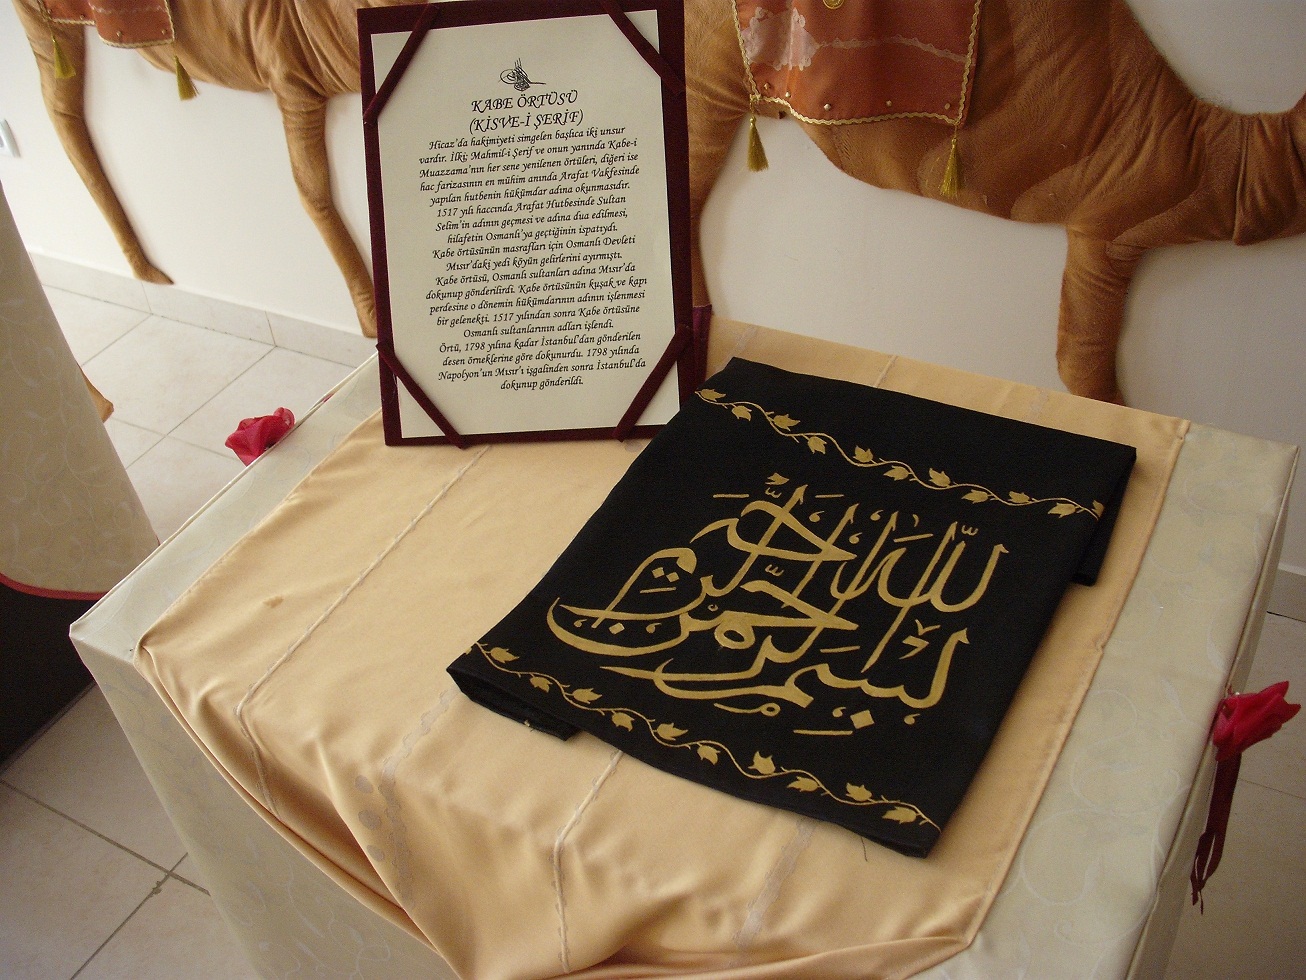 KABE ÖRTÜSÜ
(KİSVE-İ ŞERİF)
Hicaz'da hakimiyeti simgelen başlıca iki unsur
vardır. İlki; Mahmil-i Şerif ve onun yanında Kabe-i
Muazzama'nın her sene yenilenen örtüleri, diğeri ise
hac farizasının en mühim anında Arafat Vakfesinde
yapılan hutbenin hükümdar adına okunmasıdır.
1517 yılı haccında Arafat Hutbesinde Sultan
Selim'in adının geçmesi ve adına dua edilmesi,
hilafetin Osmanlı'ya geçtiğinin ispatıydı.
Kabe örtüsünün masrafları için Osmanlı Devleti
Mısır'daki yedi köyün gelirlerini ayırmıştı.
Kabe örtüsü, Osmanlı sultanları adına Mısır'da
dokunup gönderilirdi. Kabe örtüsünün kuşak ve kapı
perdesine o dönemin hükümdarının adının işlenmesi
bir gelenekti. 1517 yılından sonra Kabe örtüsüne
Osmanlı sultanlarının adları işlendi.
Örtü, 1798 yılına kadar İstanbul'dan gönderilen
desen örneklerine göre dokunurdu. 1798 yılında
Napolyon'un Mısır'ı işgalinden sonra İstanbul'da
dokunup gönderildi.
بسم الله الرحمن الرحيم